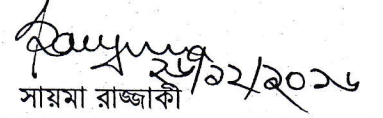 ২৬/১২/২০১৬
সায়মা রাজ্জাকী